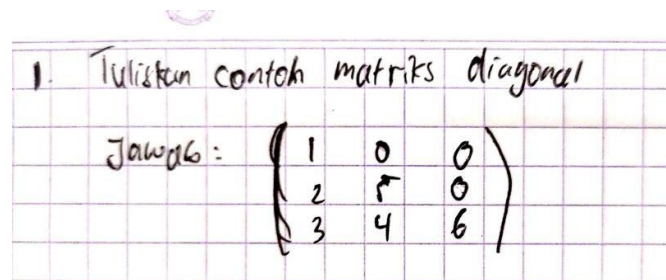 1. Tuliskan contoh matriks diagonal
Jawab : ( 1 0 0
2 5 0
3 4 6 )